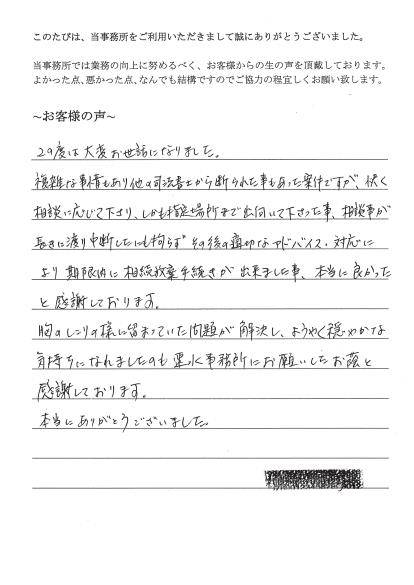 このたびは、当事務所をご利用いただきまして誠にありがとうございました。
当事務所では業務の向上に努めるべく、お客様からの生の声を頂戴しております。
よかった点、悪かった点、なんでも結構ですのでご協力の程宜しくお願い致します。
~お客様の声~
この度は大変お世話になりました。
複雑な事情もあり他の司法書士から断られた事もあった案件ですが、快く
相談に応じて下さり、しかも指定場所まで出向いて下さった事、相談事が
長きに渡り中断したにも拘らず その後の適切なアドバイス、対応に
より 期限内に 相続放棄手続きが 出来ました事、本当に良かった
と 感謝しております。
胸のしこりの様に留まっていた問題が 解決し、ようやく 穏やかな
気持ちになれましたのも 事務所にお願いしたお蔭と
感謝しております。
本当にありがとうございました。